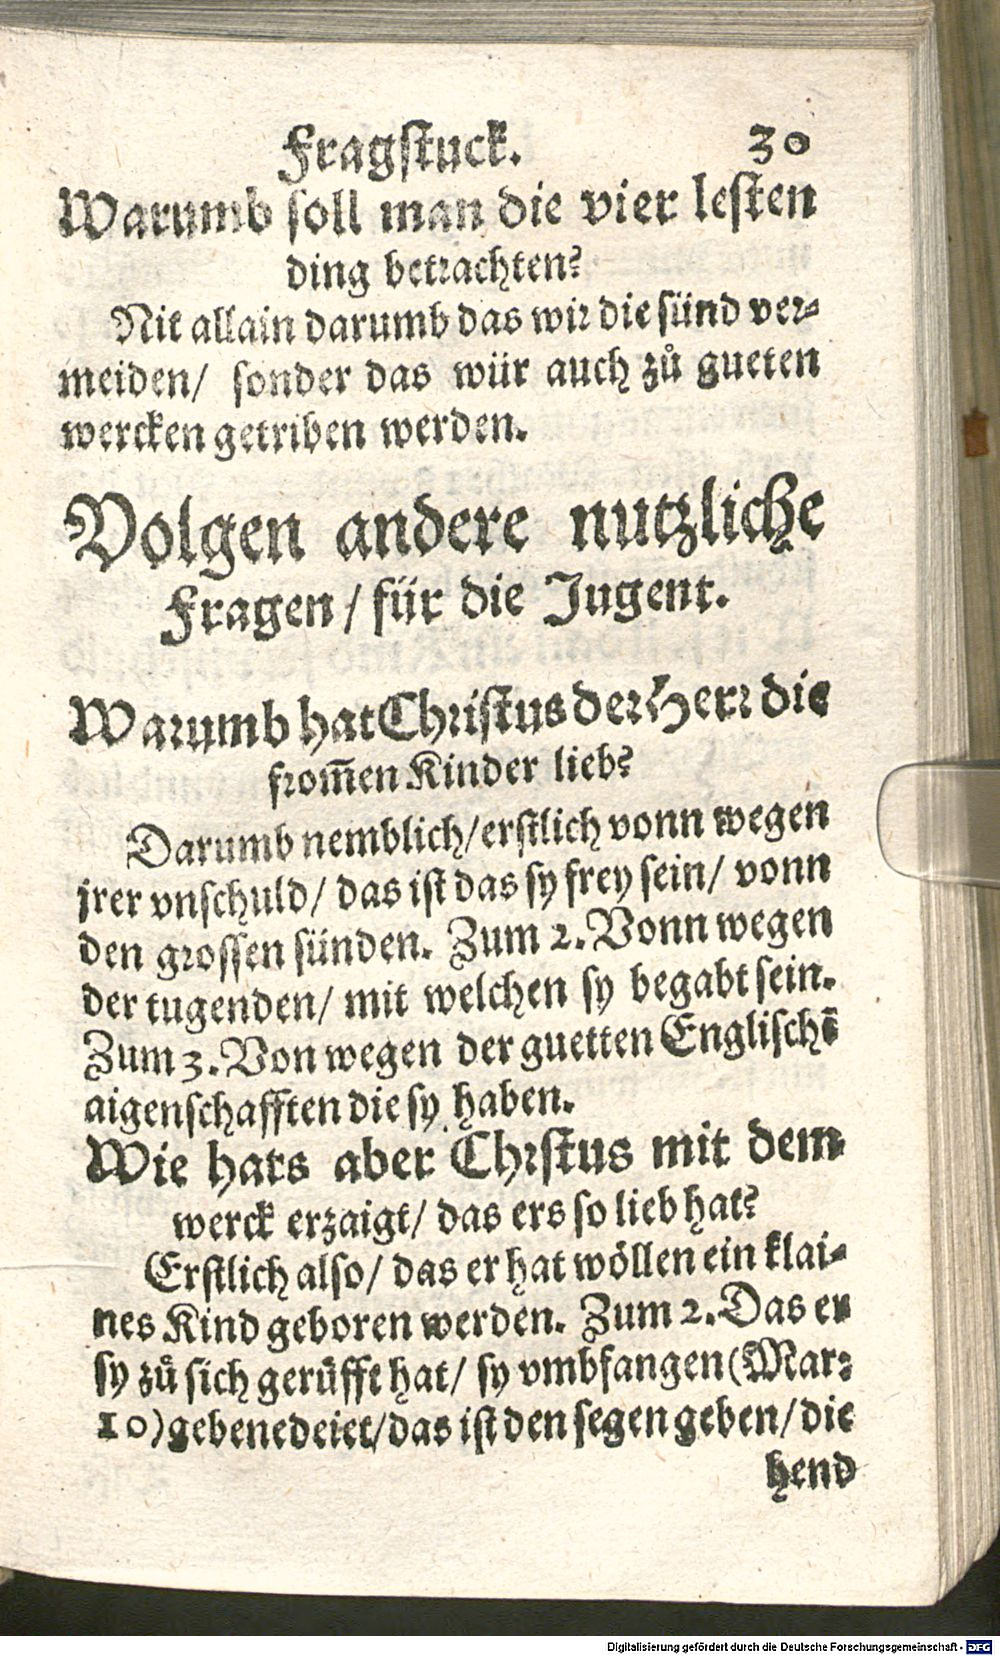 Fragstuck. 30
Warumb soll man die vier lesten
ding betrachten?
Nit allain darumb das wir die sünd ver-
meiden/ sonder das wür auch zů gueten
wercken getriben werden.
Volgen andere nutzliche
Fragen/ für die Jugent.
Warumb hat Christus der Herr die
from̄en Kinder lieb?
Darumb nemblich/ erstlich vonn wegen
jrer vnschuld/ das ist das sy frey sein/ vonn
den grossen sünden. Zum 2. Vonn wegen
der tugenden/ mit welchen sy begabt sein.
Zum 3. Von wegen der guetten Englischē
aigenschafften die sy haben.
Wie hats aber Chrstus mit dem
werck erzaigt/ das ers so lieb hat?
Erstlich also/ das er hat wöllen ein klai-
nes Kind geboren werden. Zum 2. Das er
sy zů sich gerůfft hat/ sy vmbfangen (Mar:
10) gebenedeiet/ das ist den segen geben/ die
hend
Digitalisierung gefördert durch die Deutsche Forschungsgemeinschaft - DFG